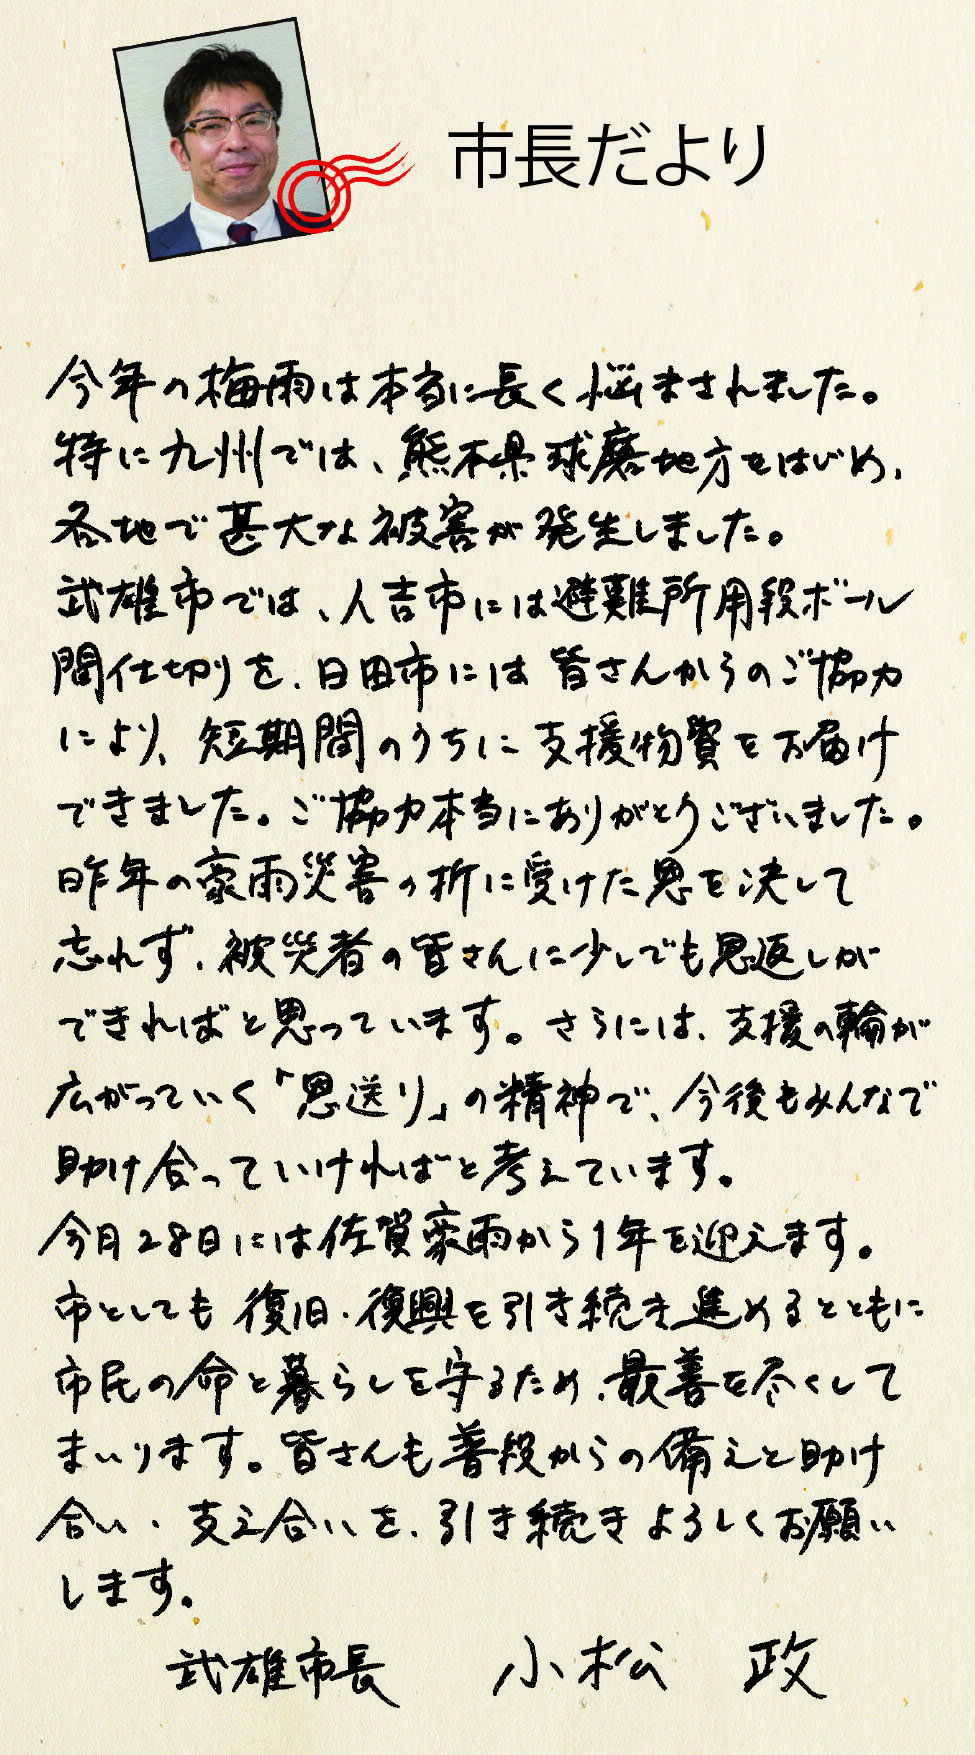 市長だより
今年の梅雨は本当に長く悩まされました。
特に九州では、熊本県球磨地方をはじめ、
各地で甚大な被害が発生しました。
武雄市では、人吉市には避難所用段ボール
間仕切りを、日田市には皆さんからのご協力
により、短期間のうちに支援物資をお届け
できました。ご協力本当にありがとうございました。
昨年の豪雨災害の折に受けた恩を決して
忘れず、被災者の皆さんに少しでも恩返しが
できればと思っています。さらには、支援の輪が
広がっていく「恩送り」の精神で、今後もみんなで
助け合っていければと考えています。
今月28日には佐賀豪雨から1年を迎えます。
市としても復旧・復興を引き続き進めるとともに
市民の命と暮らしを守るため、最善を尽くして
まいります。皆さんも普段からの備えと助け
合い・支え合いを、引き続きよろしくお願い
します。
武雄市長 小松 政